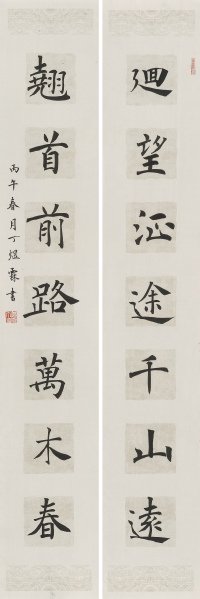 迴望征途千山遠
翹首前路萬木春
丙午春月丁煜霖書